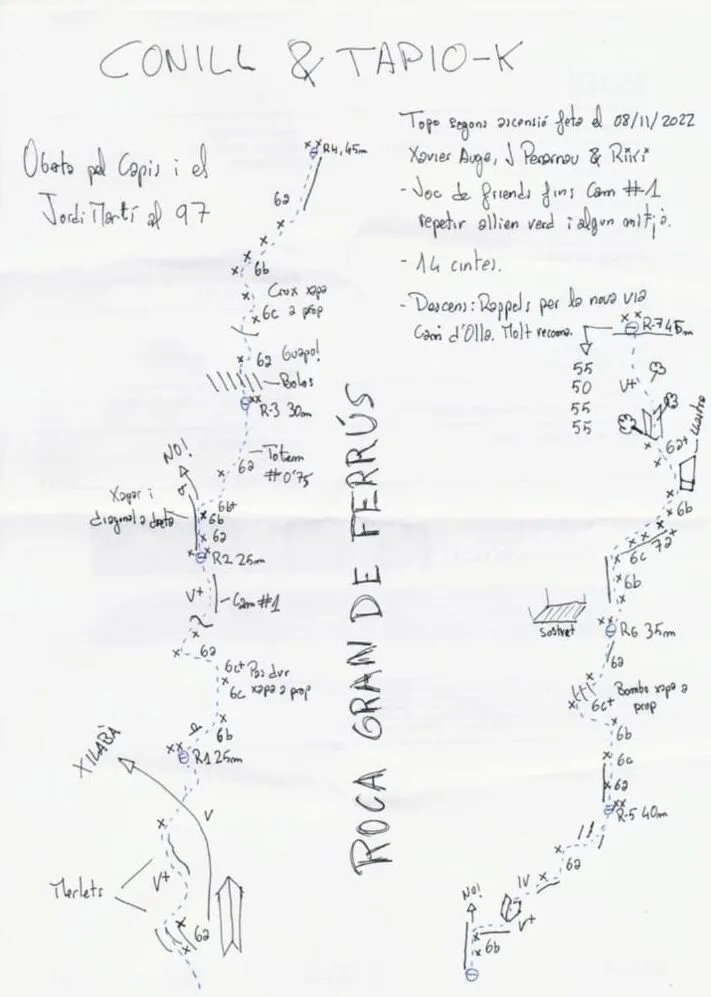 CONILL & TAPIO-K
Oberta pel Capis i el
Jordi Martí al 97
Topo segons ascensió feta el 08/11/2022
Xavier Auge, J Perarnau & Riki
- Joc de friends fins Cam #-1
repetir allien verd i algun mitjà.
- 14 cintes.
- Descens: Rappels per la nova via
Camí d'Olla. Molt recoma.
R4, 45m
6a
6b
Crux xapa
6c a prop
6a Guapo!
Bolos
R-3 30m
6a
Totem
#0'75
NO!
Xapar i
diagonal a dreta
6b+
6b
6a
R2 25m
V+
Cam #1
6a
6c+ Pas dur
6c xapa a prop
6b
R1 25m
XILABÀ
V
V+
Merlets
6a
ROCA GRAN DE FERRÚS
R-7 45m
55
50
55
55
V+
6a+
Llastra
6b
7a
6c
6b
sostret
R6 35m
6a
Bombo xapa a
prop
6c+
6b
6c
6a
R-5 40m
6a
IV
V+
NO!
6b